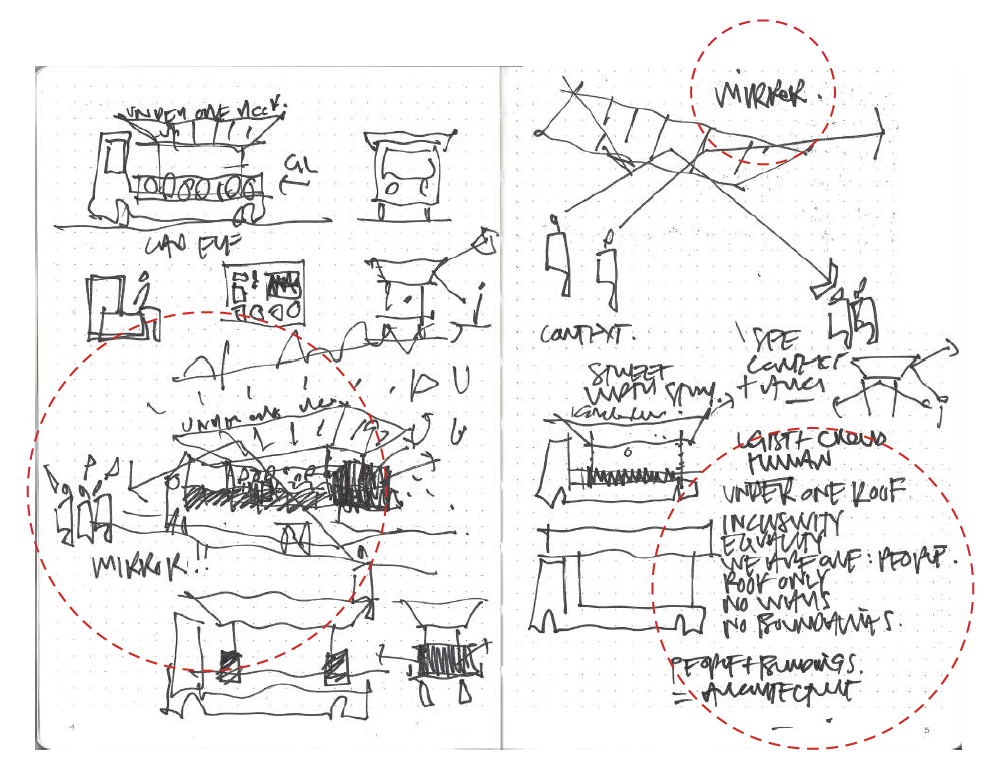 UNDER ONE ROOF.
GL
UNDER ONE ROOF
MIRROR!!
4
MIRROR.
CONTEXT.
SEE
CONTEXT
STREET
WITH
HUMAN
UNDER ONE ROOF
INCLUSIVITY
EQUALITY
WE ARE ONE: PEOPLE.
ROOF ONLY
NO WALLS
NO BOUNDARIES.
PEOPLE + BUILDINGS.
= ARCHITECTURE
5